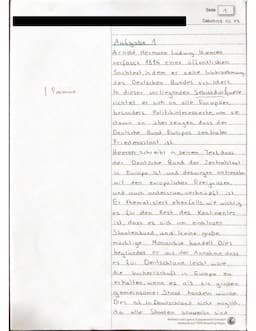 Seite 1
Aufgabe 1
Arnold Hermann Ludwig Heeren
verfasst 1816 einen öffentlichen
Sachtext, indem er seine Wahrnehmung
des Deutschen Bundes schildert.
In dieser vorliegenden Sekundärquelle
richtet er sich an alle Europäer
besonders Politikinteressierte, um sie
davon zu überzeugen dass der
Deutsche Bund Europas zentraler
Friedensstaat ist.
Heeren schreibt in seinem Text, dass
der Deutsche Bund der Zentralstaat
in Europa ist und deswegen untrennbar
mit den europäischen Ereignissen
und auch andersrum, verknüpft ist.
Er thematisiert ebenfalls wie wichtig
es für den Rest des Kontinentes
ist, dass es sich um einen
Staatenbund und keine große
mächtige Monarchie handelt. Dies
begründet er mit der Annahme, dass
es für Deutschland leicht wäre
die Vorherrschaft in Europa zu
erhalten, wenn es als ein großer
gemeinsamer Staat handeln würde.
Dies ist in Deutschland nicht möglich,
da alle Staaten